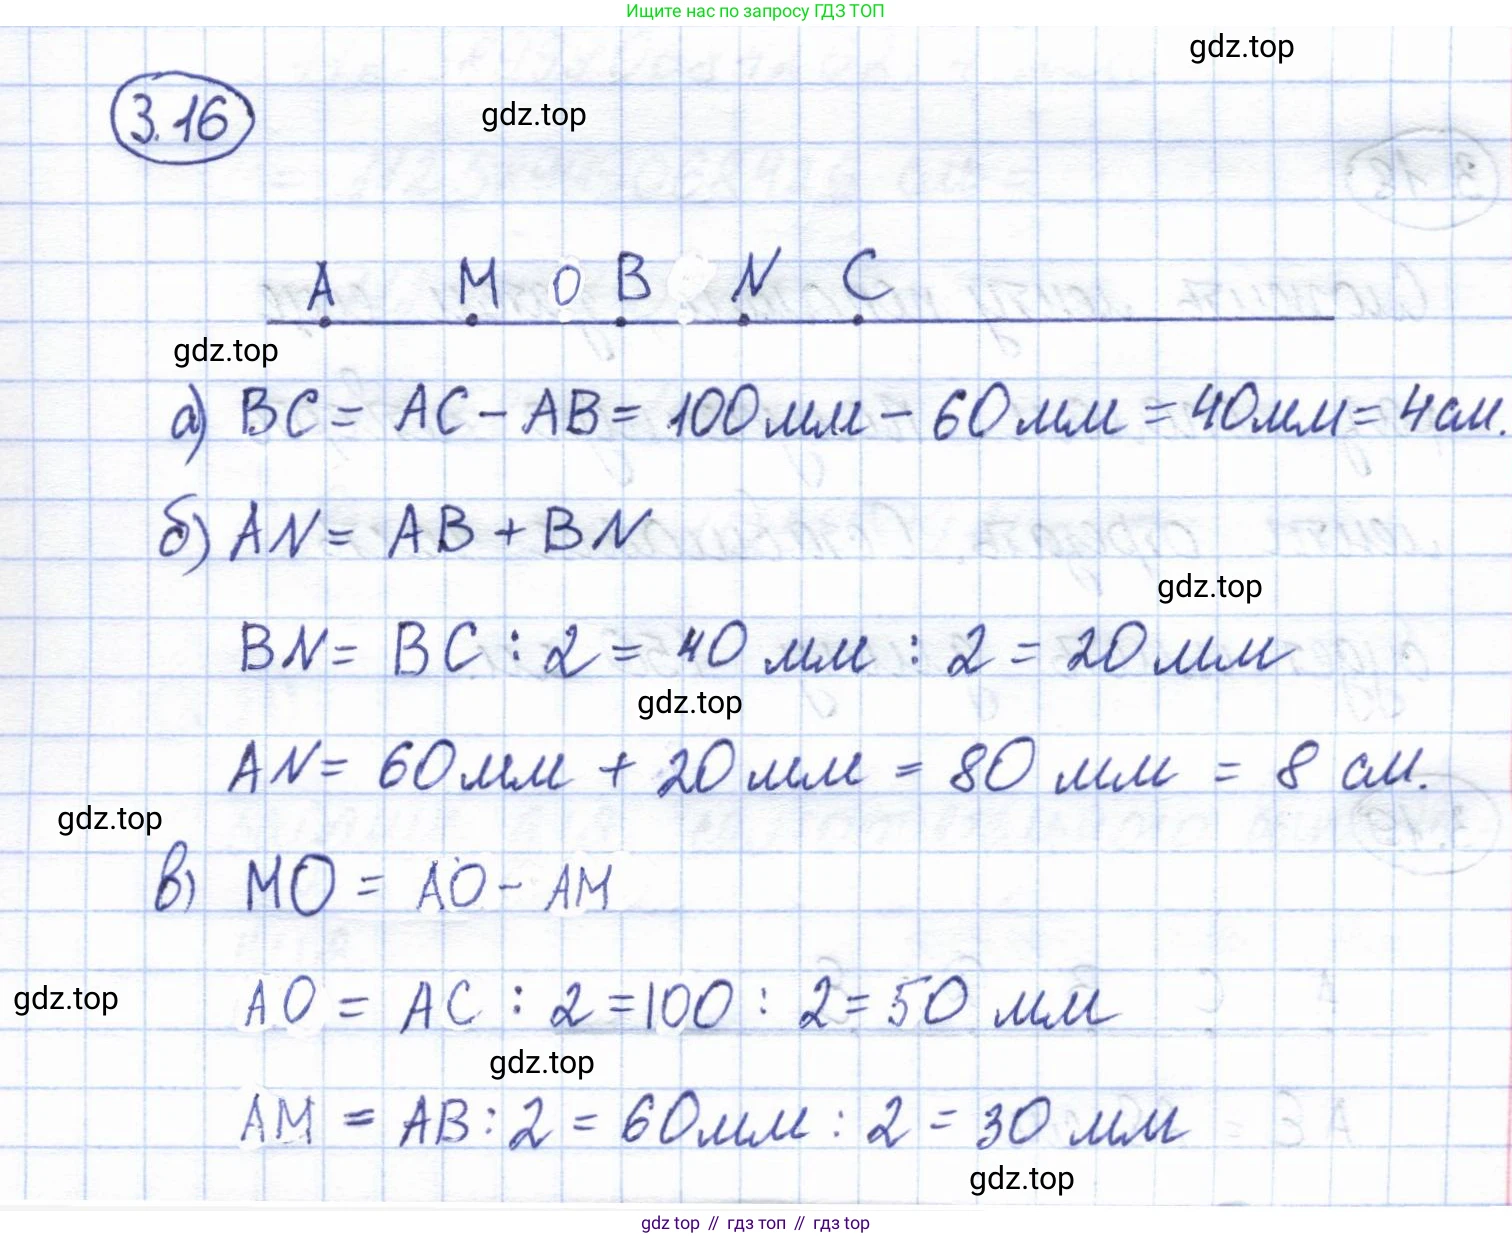 Ищите нас по запросу ГДЗ ТОП
gdz.top
3.16
gdz.top
A M O B N C
gdz.top
а) BC = AC - AB = 100мм - 60мм = 40мм = 4см.
б) AN = AB + BN
gdz.top
BN = BC : 2 = 40 мм : 2 = 20мм
gdz.top
AN = 60мм + 20мм = 80 мм = 8 см.
gdz.top
в) MO = AO - AM
gdz.top
AO = AC : 2 = 100 : 2 = 50 мм
gdz.top
AM = AB : 2 = 60мм : 2 = 30 мм
gdz.top
gdz top // гдз топ // гдз top